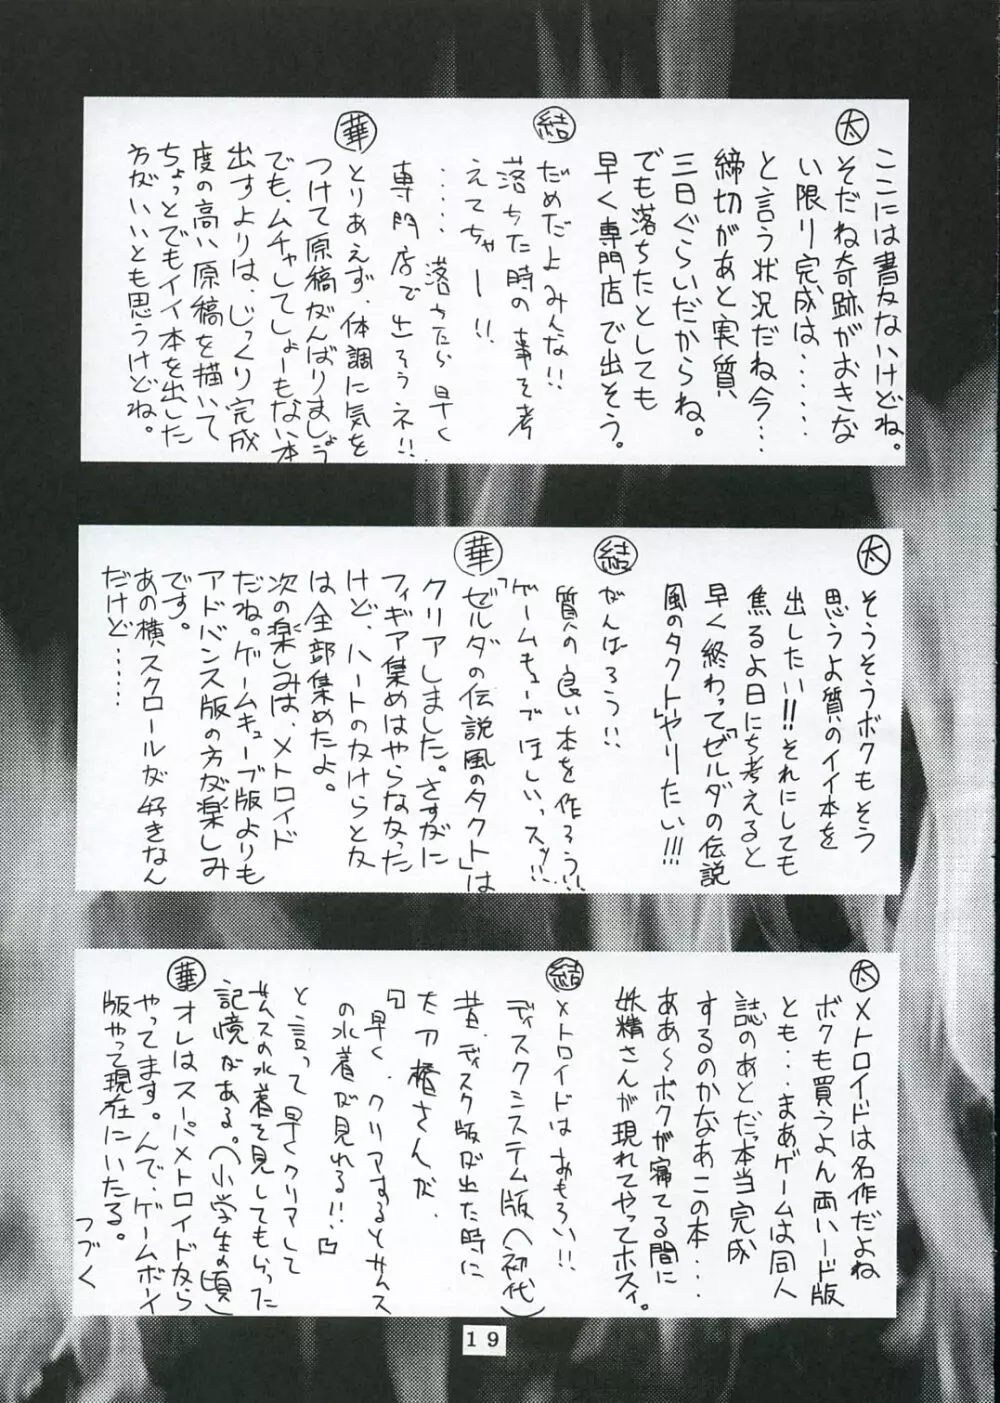 ここには書けないけどね。
太
そだね奇跡がおきな
い限り完成は・・・・・・
と言う状況だね今・・・
締切があと実質
三日ぐらいだからね。
でも落ちたとしても
早く専門店で出そう。
結
だめだよみんな!!
落ちた時の事を考
えてちゃー!!
・・・・落ちたら早く
専門店で出そうネ!!
華
とりあえず、体調に気を
つけて原稿がんばりましょう
でも、ムチャしてしょーもない本
出すよりは、じっくり完成
度の高い原稿を描いて
ちょっとでもイイ本を出した
方がいいとも思うけどね。
太
そうそうボクもそう
思うよ質のイイ本を
出したい!!それにしても
焦るよ日にち考えると
早く終わって「ゼルダの伝説
風のタクト」やりたい!!!
結
がんばろう!!
質の良い本を作ろう!!
ゲームキューブほしいっスッ!!
華
「ゼルダの伝説風のタクト」は
クリアしました。さすがに
フィギア集めはやらなかった
けど、ハートのかけらとか
は全部集めたよ。
次の楽しみは、メトロイド
だね。ゲームキューブ版よりも
アドバンス版の方が楽しみ
です。
あの横スクロールが好きなん
だけど・・・・・・
太
メトロイドは名作だよね
ボクも買うよん両ハード版
とも・・・まあゲームは同人
誌のあとだ本当完成
するのかなあこの本・・・・
ああ〜ボクが寝てる間に
妖精さんが現れてやってホスィ。
結
メトロイドはおもろい!!
ディスクシステム版(初代)
昔、ディスク版が出た時に
大刀橋さんが、
「早く、クリアするとサムス
の水着が見れる!!」
と言って早くクリアして
サムスの水着を見してもらった
記憶がある。(小学生の頃)
華
オレはスーパメトロイドから
やってます。んで、ゲームボーイ
版やって現在にいたる。
つづく
19